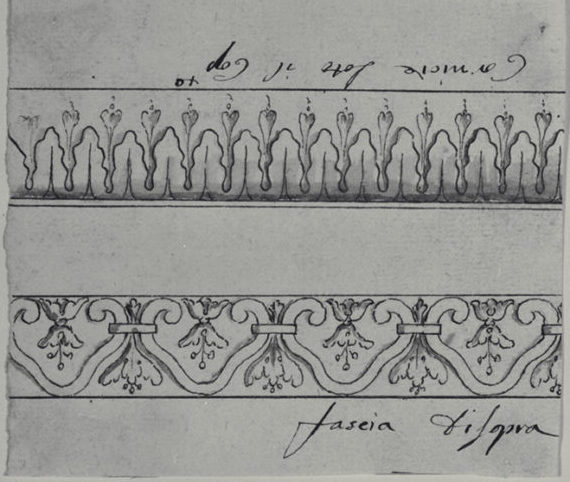 Cornicie sote il Cap to
fascia disopra